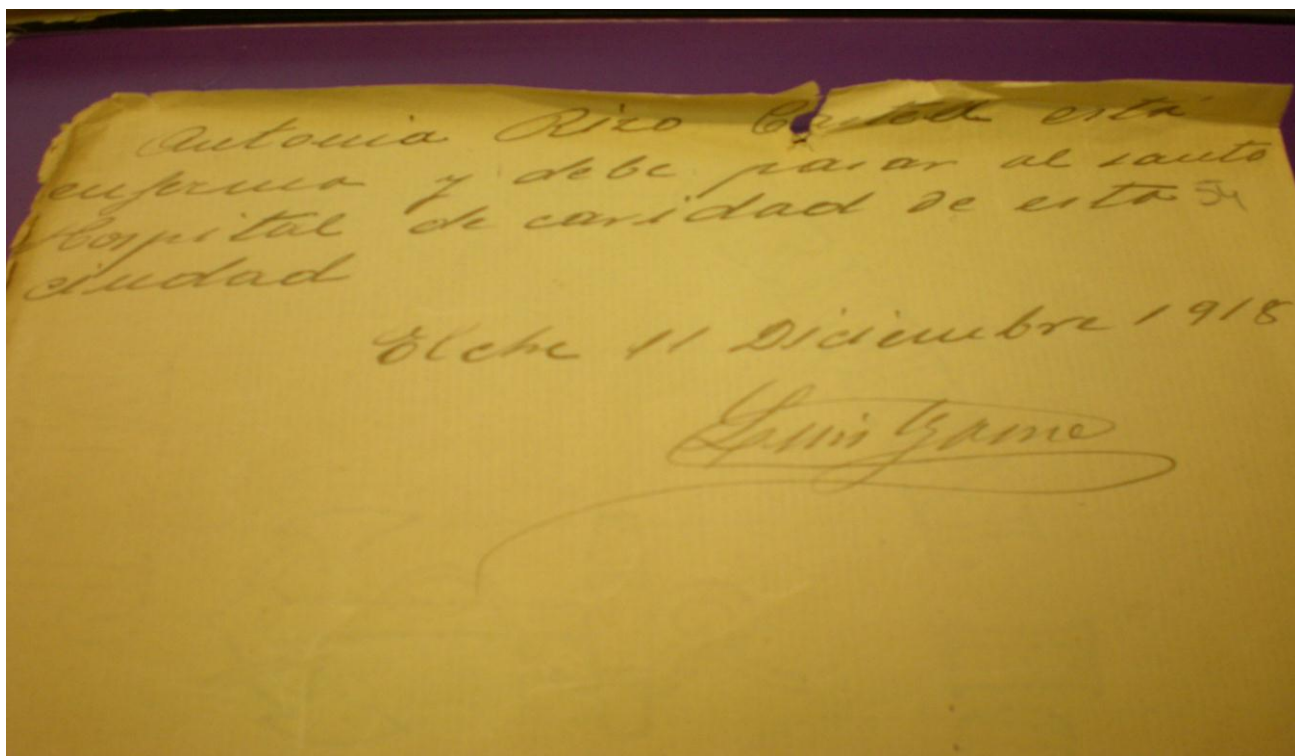 Antonia Rizo está
enferma y debe pasar al santo
Hospital de caridad de esta 54
ciudad
Elche 11 Diciembre 1918
Luis